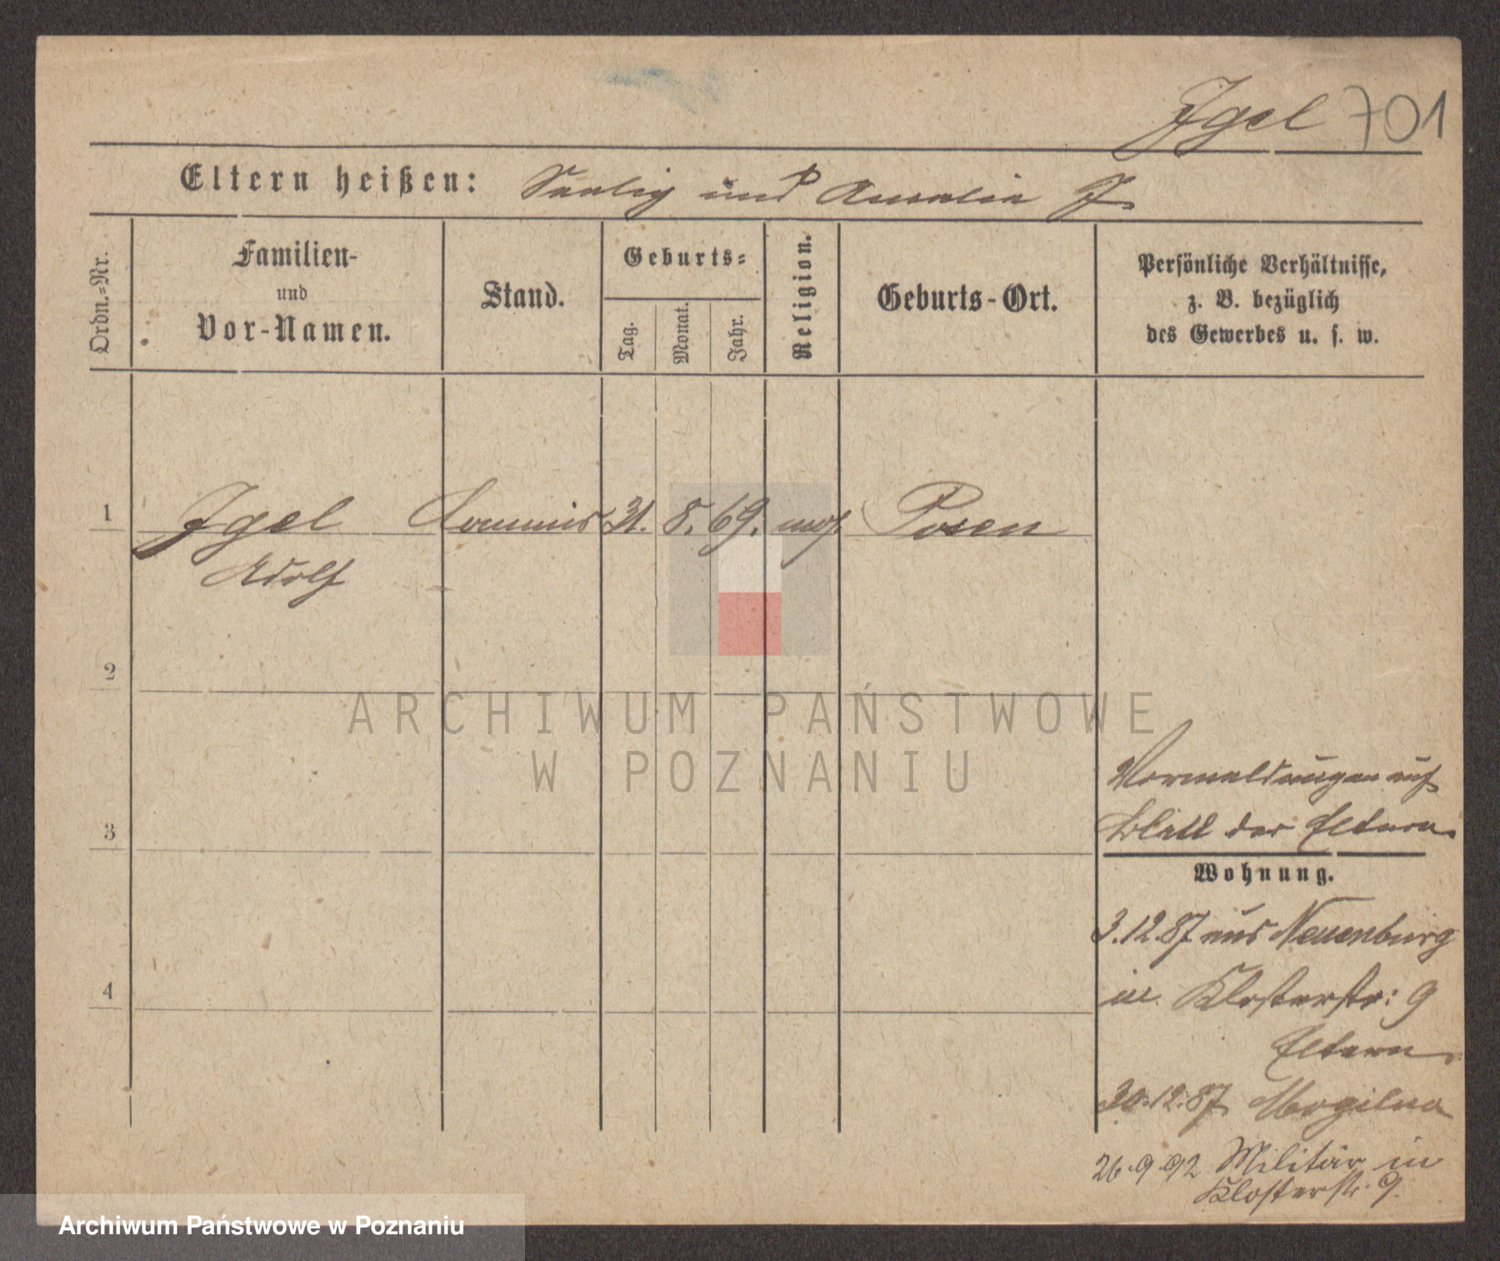 Igel 701
Eltern heißen: Saulig und Amalia I
Ordn.=Nr.
Familien-
und
Vor-Namen.
Stand.
Geburts=
Tag.
Monat.
Jahr.
Religion.
Geburts-Ort.
Persönliche Verhältnisse,
z. B. bezüglich
des Gewerbes u. s. w.
1 Igel Commis 31. 8. 69. mos Posen
Adolf
2
3
4
ARCHIWUM PAŃSTWOWE
W POZNANIU
Vormeldungen auf
Blatt der Eltern
Wohnung.
3.12.87 aus Neuenburg
in Klosterstr: 9
Eltern
30.12.87 Mogilno
26.9.92 Militär in
Klosterstr. 9.
Archiwum Państwowe w Poznaniu